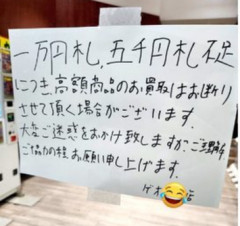 一万円札、五千円札不足
につき、高額商品のお買取はお断り
させて頂く場合がございます。
大変ご迷惑をおかけ致しますが、ご理解
ご協力の程、お願い申し上げます。